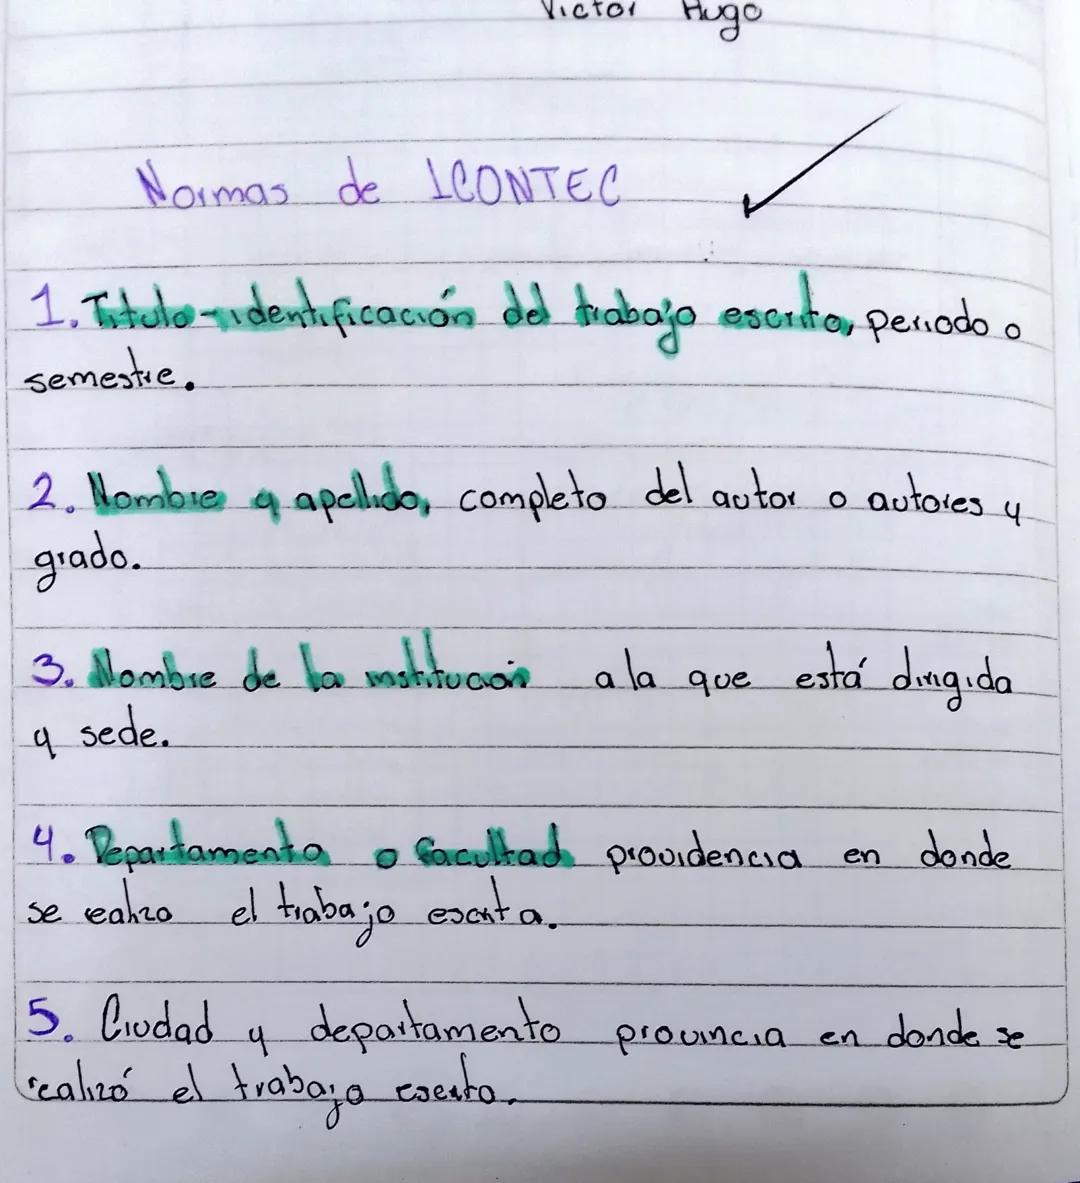 Victor Hugo
Normas de ICONTEC
1. Titulo-identificación del trabajo escrito, periodo o
semestre.
2. Nombre y apellido, completo del autor o autores y
grado.
3. Nombre de la institución a la que está dirigida
y sede.
4. Departamento o facultad providencia en donde
se realizo el trabajo escrita.
5. Ciudad y departamento provincia en donde se
realizó el trabajo escrito.